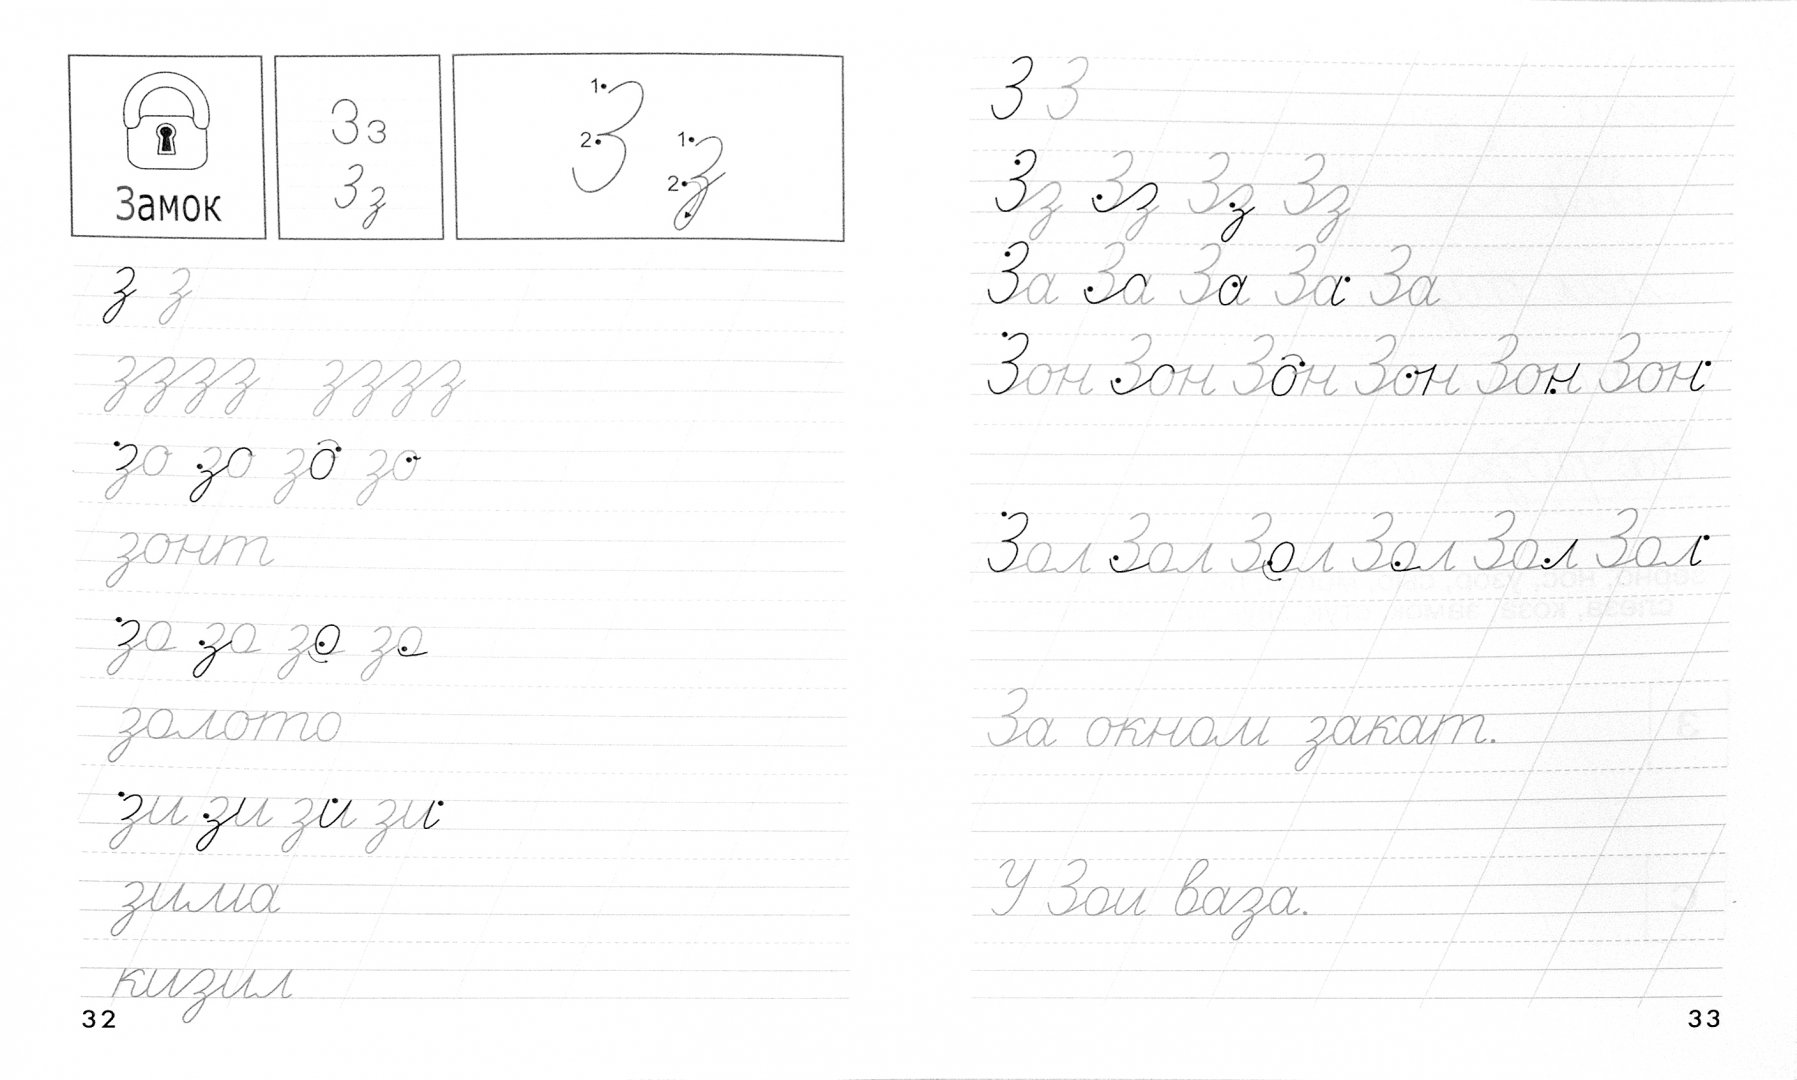 Замок
Зз
Зз
1 2 З 1 2 з
з з
зззз зззз
зо зо зо зо
зонт
за за за за
золото
зи зи зи зи
зима
кизил
32
З З
Зз Зз Зз Зз
За За За За За
Зон Зон Зон Зон Зон Зон
Зол Зол Зол Зол Зол Зол
За окном закат.
У Зои ваза.
33